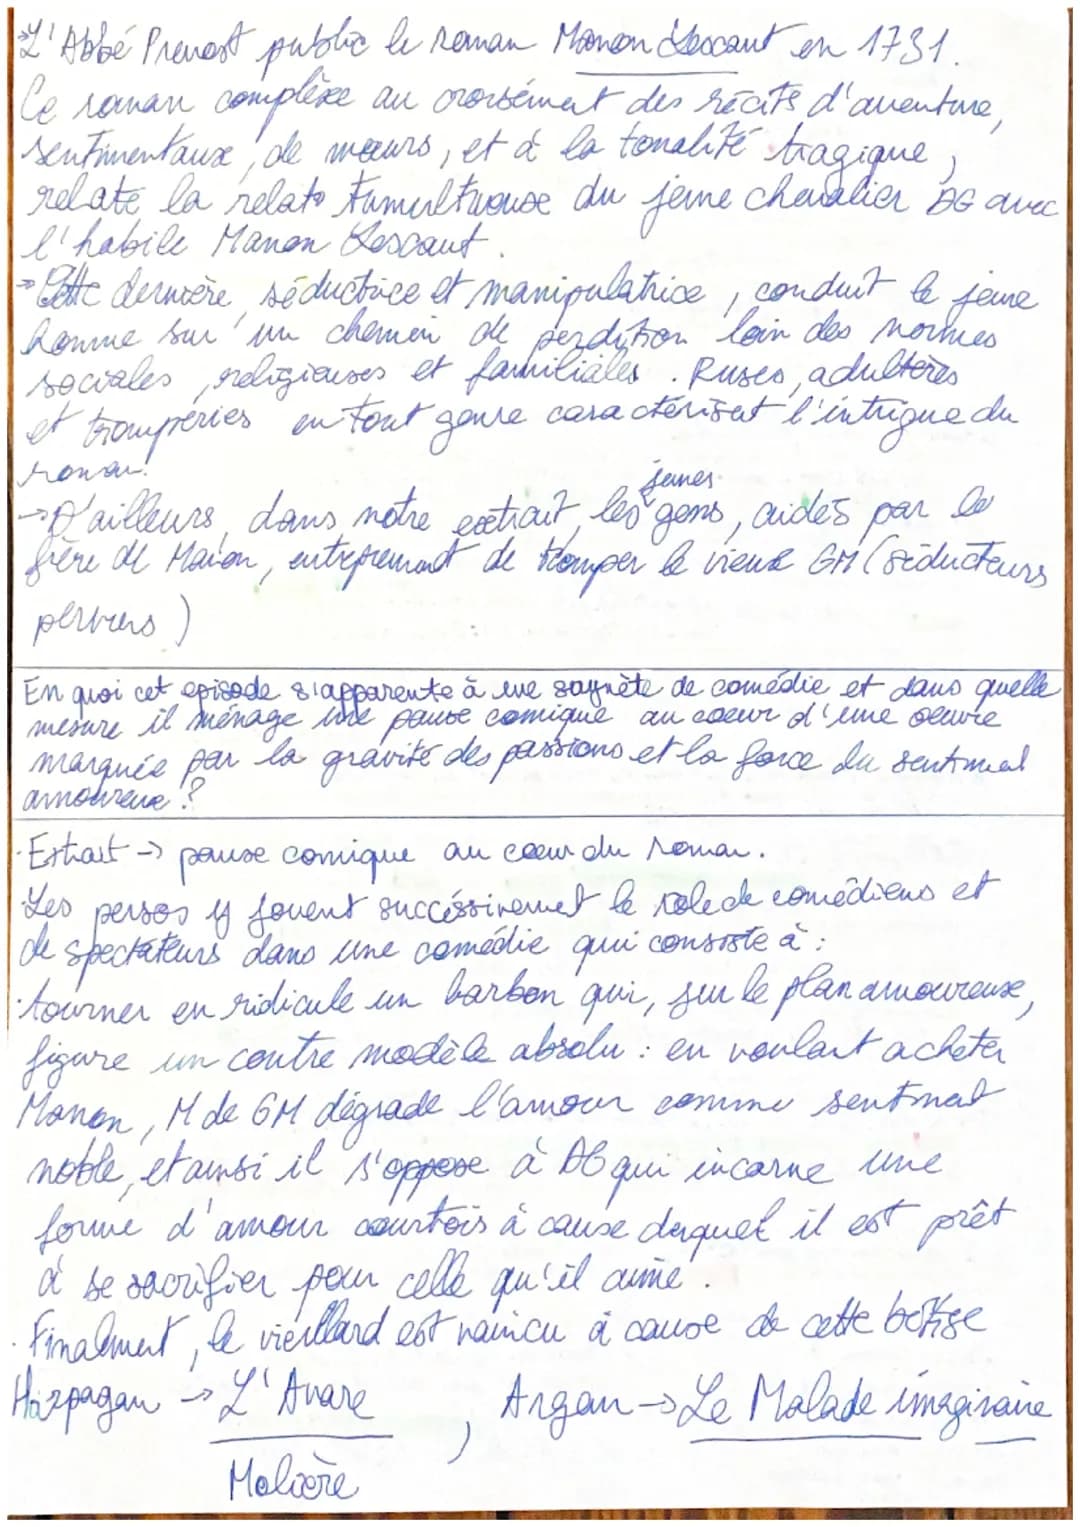 →L'Abbé Prevost public le roman Manon Lescaut en 1731.
Ce roman complèxe au croisément des récits d'aventure,
sentimentaux, de mœurs, et à la tonalité tragique,
relate la relat° tumultueuse du jeune chevalier DG avec
l'habile Manon Lescaut.
→ Cette dernière, séductrice et manipulatrice, conduit le jeune
homme sur un chemin de perdition loin des normes
sociales, religieuses et familiales. Ruses, adultères
et tromperies en tout genre caractérisent l'intrigue du
roman.
→D'ailleurs, dans notre extrait, les jeunes gens, aidés par le
frère de Manon, entreprennent de tromper le vieux GM (séducteurs
pervers)
En quoi cet épisode s'apparente à une saynète de comédie et dans quelle
mesure il ménage une pause comique au cœur d'une œuvre
marquée par la gravité des passions et la force du sentiment
amoureux ?
·Extrait → pause comique au cœur du roman.
·Les persos y jouent successivement le rôle de comédiens et
de spectateurs dans une comédie qui consiste à :
·tourner en ridicule un barbon qui, sur le plan amoureux,
figure un contre modèle absolu : en voulant acheter
Manon, M de GM dégrade l'amour comme sentiment
noble, et ainsi il s'oppose à DG qui incarne une
forme d'amour courtois à cause duquel il est prêt
à se sacrifier pour celle qu'il aime.
·Finalement, le vieillard est vaincu à cause de cette bêtise
Harpagan → L'Avare, Argan → Le Malade imaginaire
Molière